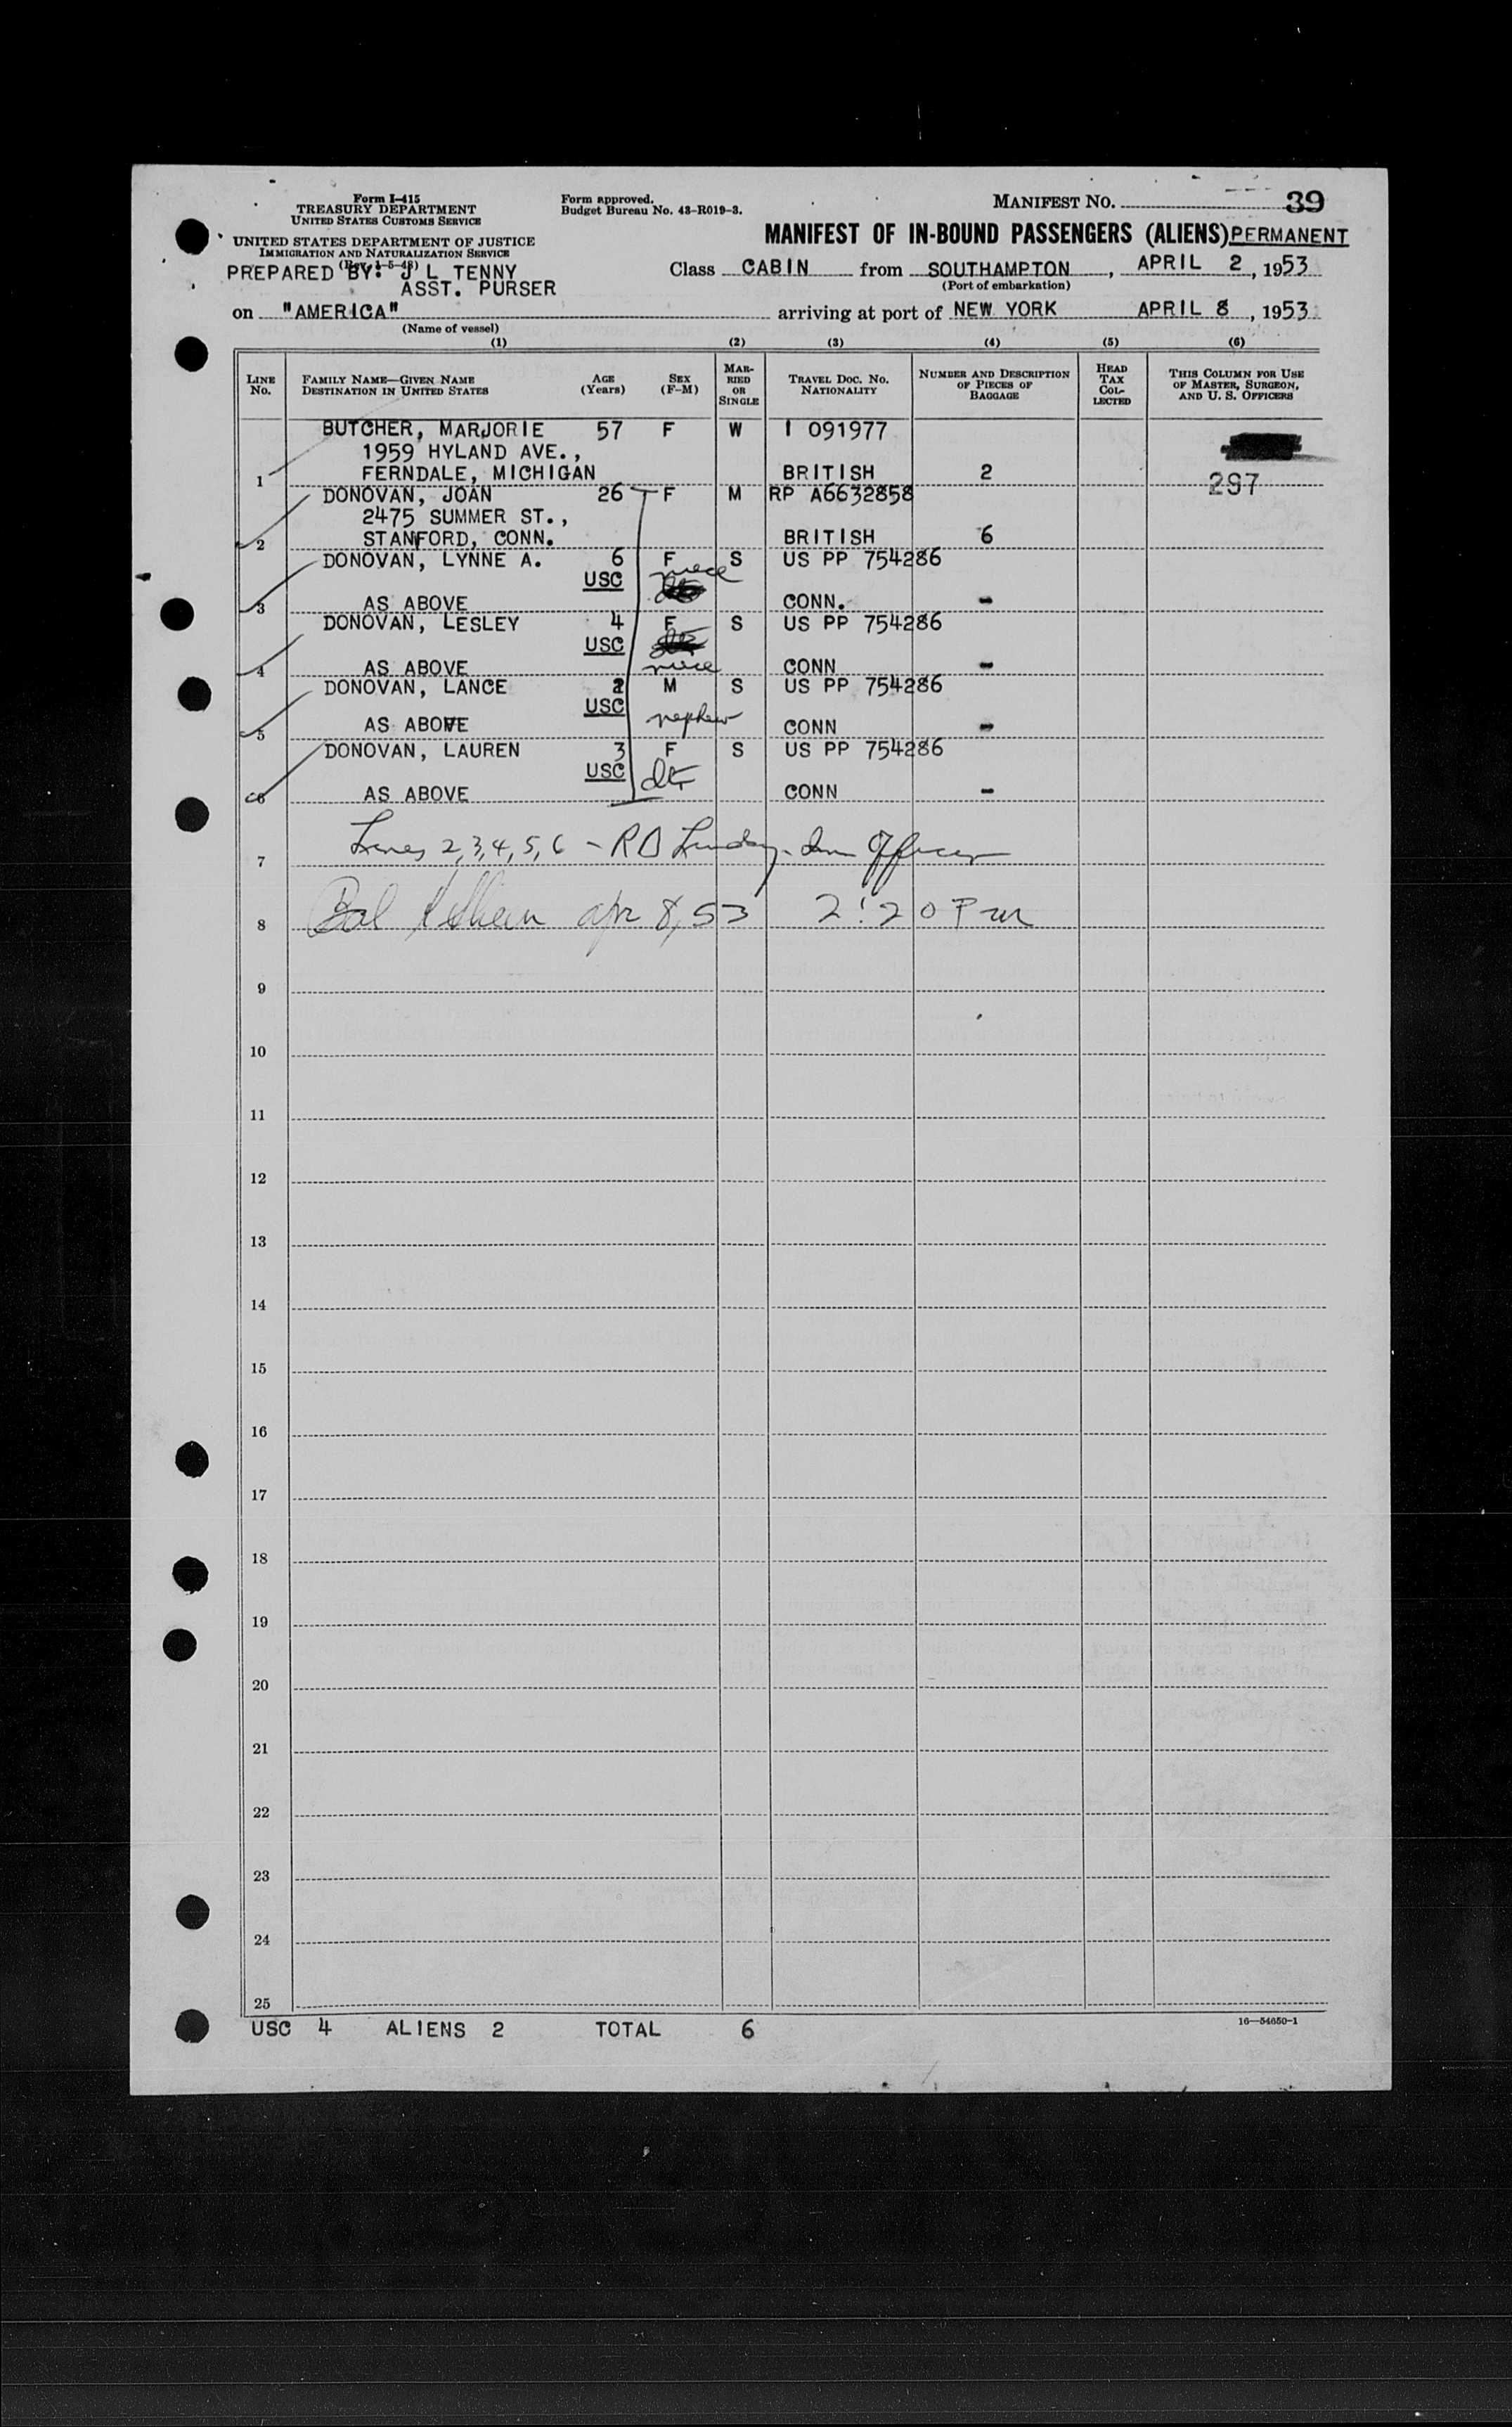 Form I-415
TREASURY DEPARTMENT
UNITED STATES CUSTOMS SERVICE
UNITED STATES DEPARTMENT OF JUSTICE
IMMIGRATION AND NATURALIZATION SERVICE
(Rev. 1-5-48)
PREPARED BY: J L TENNY
ASST. PURSER
Form approved.
Budget Bureau No. 43-R019-3.
MANIFEST NO. 39
MANIFEST OF IN-BOUND PASSENGERS (ALIENS) PERMANENT
Class CABIN from SOUTHAMPTON, APRIL 2, 1953
(Port of embarkation)
on "AMERICA" arriving at port of NEW YORK APRIL 8, 1953
(Name of vessel)
(1) (2) (3) (4) (5) (6)
LINE NO. FAMILY NAME—GIVEN NAME DESTINATION IN UNITED STATES AGE (Years) SEX (F-M) MARRIED OR SINGLE TRAVEL DOC. NO. NATIONALITY NUMBER AND DESCRIPTION OF PIECES OF BAGGAGE HEAD TAX COLLECTED THIS COLUMN FOR USE OF MASTER, SURGEON, AND U. S. OFFICERS
BUTCHER, MARJORIE 57 F W I 091977
1959 HYLAND AVE.,
1 FERNDALE, MICHIGAN BRITISH 2 297
DONOVAN, JOAN 26 F M RP A6632858
2475 SUMMER ST.,
2 STANFORD, CONN. BRITISH 6
DONOVAN, LYNNE A. 6 F S US PP 754286
USC niece
3 AS ABOVE CONN. -
DONOVAN, LESLEY 4 F S US PP 754286
USC
4 AS ABOVE niece CONN -
DONOVAN, LANCE 2 M S US PP 754286
USC nephew
5 AS ABOVE CONN -
DONOVAN, LAUREN 3 F S US PP 754286
USC dtr
6 AS ABOVE CONN -
7 Lines 2,3,4,5,6 - R B Lindsay Imm Officer
8 Bal apr 8, 53 2:20 Pm
9
10
11
12
13
14
15
16
17
18
19
20
21
22
23
24
25
USC 4 ALIENS 2 TOTAL 6
16—54650-1